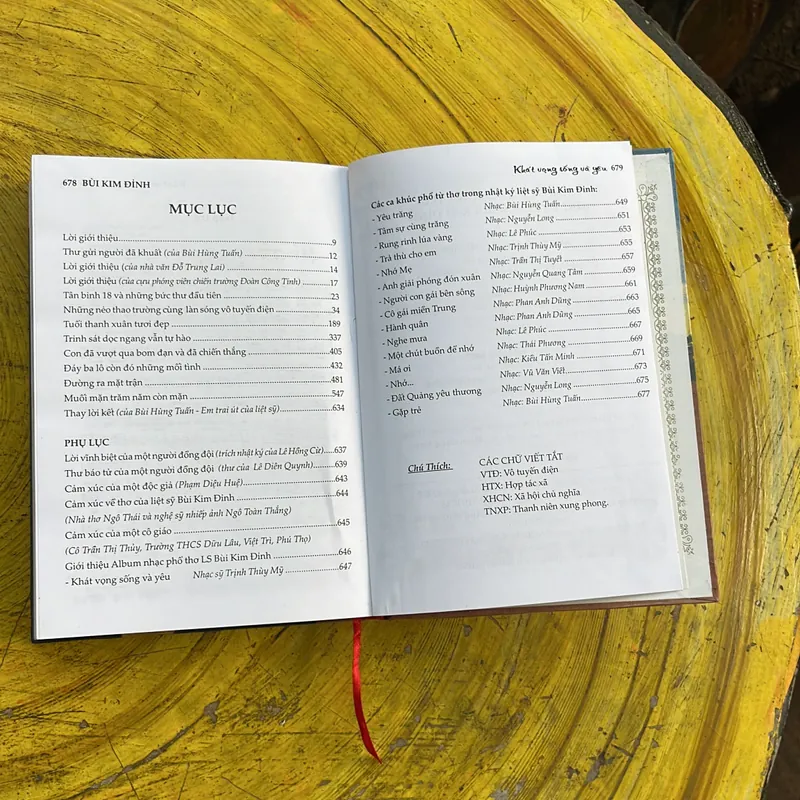 678 BÙI KIM ĐỈNH
MỤC LỤC
Lời giới thiệu.....9
Thư gửi người đã khuất (của Bùi Hùng Tuấn).....12
Lời giới thiệu (của nhà văn Đỗ Trung Lai).....14
Lời giới thiệu (của cựu phóng viên chiến trường Đoàn Công Tính).....17
Tân binh 18 và những bức thư đầu tiên.....23
Những nẻo thao trường cùng làn sóng vô tuyến điện.....34
Tuổi thanh xuân tươi đẹp.....189
Trinh sát dọc ngang vẫn tự hào.....337
Con đã vượt qua bom đạn và đã chiến thắng.....405
Đáy ba lô còn đó những mối tình.....432
Đường ra mặt trận.....481
Muối mặn trăm năm còn mặn.....547
Thay lời kết (của Bùi Hùng Tuấn - Em trai út của liệt sỹ).....634
PHỤ LỤC
Lời vĩnh biệt của một người đồng đội (trích nhật ký của Lê Hồng Cừ).....637
Thư báo tử của một người đồng đội (thư của Lê Diên Quynh).....639
Cảm xúc của một độc giả (Phạm Diệu Huệ).....643
Cảm xúc về thơ của liệt sỹ Bùi Kim Đỉnh.....644
(Nhà thơ Ngô Thái và nghệ sỹ nhiếp ảnh Ngô Toàn Thắng)
Cảm xúc của một cô giáo.....645
(Cô Trần Thị Thủy, Trường THCS Dữu Lâu, Việt Trì, Phú Thọ)
Giới thiệu Album nhạc phổ thơ LS Bùi Kim Đỉnh.....646
- Khát vọng sống và yêu Nhạc sỹ Trịnh Thùy Mỹ.....647
Khát vọng sống và yêu 679
Các ca khúc phổ từ thơ trong nhật ký liệt sỹ Bùi Kim Đỉnh:
- Yêu trăng Nhạc: Bùi Hùng Tuấn.....649
- Tâm sự cùng trăng Nhạc: Nguyễn Long.....651
- Rung rinh lúa vàng Nhạc: Lê Phúc.....653
- Trả thù cho em Nhạc: Trịnh Thùy Mỹ.....655
- Nhớ Mẹ Nhạc: Trần Thị Tuyết.....657
- Anh giải phóng đón xuân Nhạc: Nguyễn Quang Tâm.....659
- Người con gái bên sông Nhạc: Huỳnh Phương Nam.....661
- Cô gái miền Trung Nhạc: Phan Anh Dũng.....663
- Hành quân Nhạc: Phan Anh Dũng.....665
- Nghe mưa Nhạc: Lê Phúc.....667
- Một chút buồn để nhớ Nhạc: Thái Phương.....669
- Má ơi Nhạc: Kiều Tấn Minh.....671
- Nhớ... Nhạc: Vũ Văn Viết.....673
- Đất Quảng yêu thương Nhạc: Nguyễn Long.....675
- Gặp trẻ Nhạc: Bùi Hùng Tuấn.....677
Chú Thích: CÁC CHỮ VIẾT TẮT
VTĐ: Vô tuyến điện
HTX: Hợp tác xã
XHCN: Xã hội chủ nghĩa
TNXP: Thanh niên xung phong.